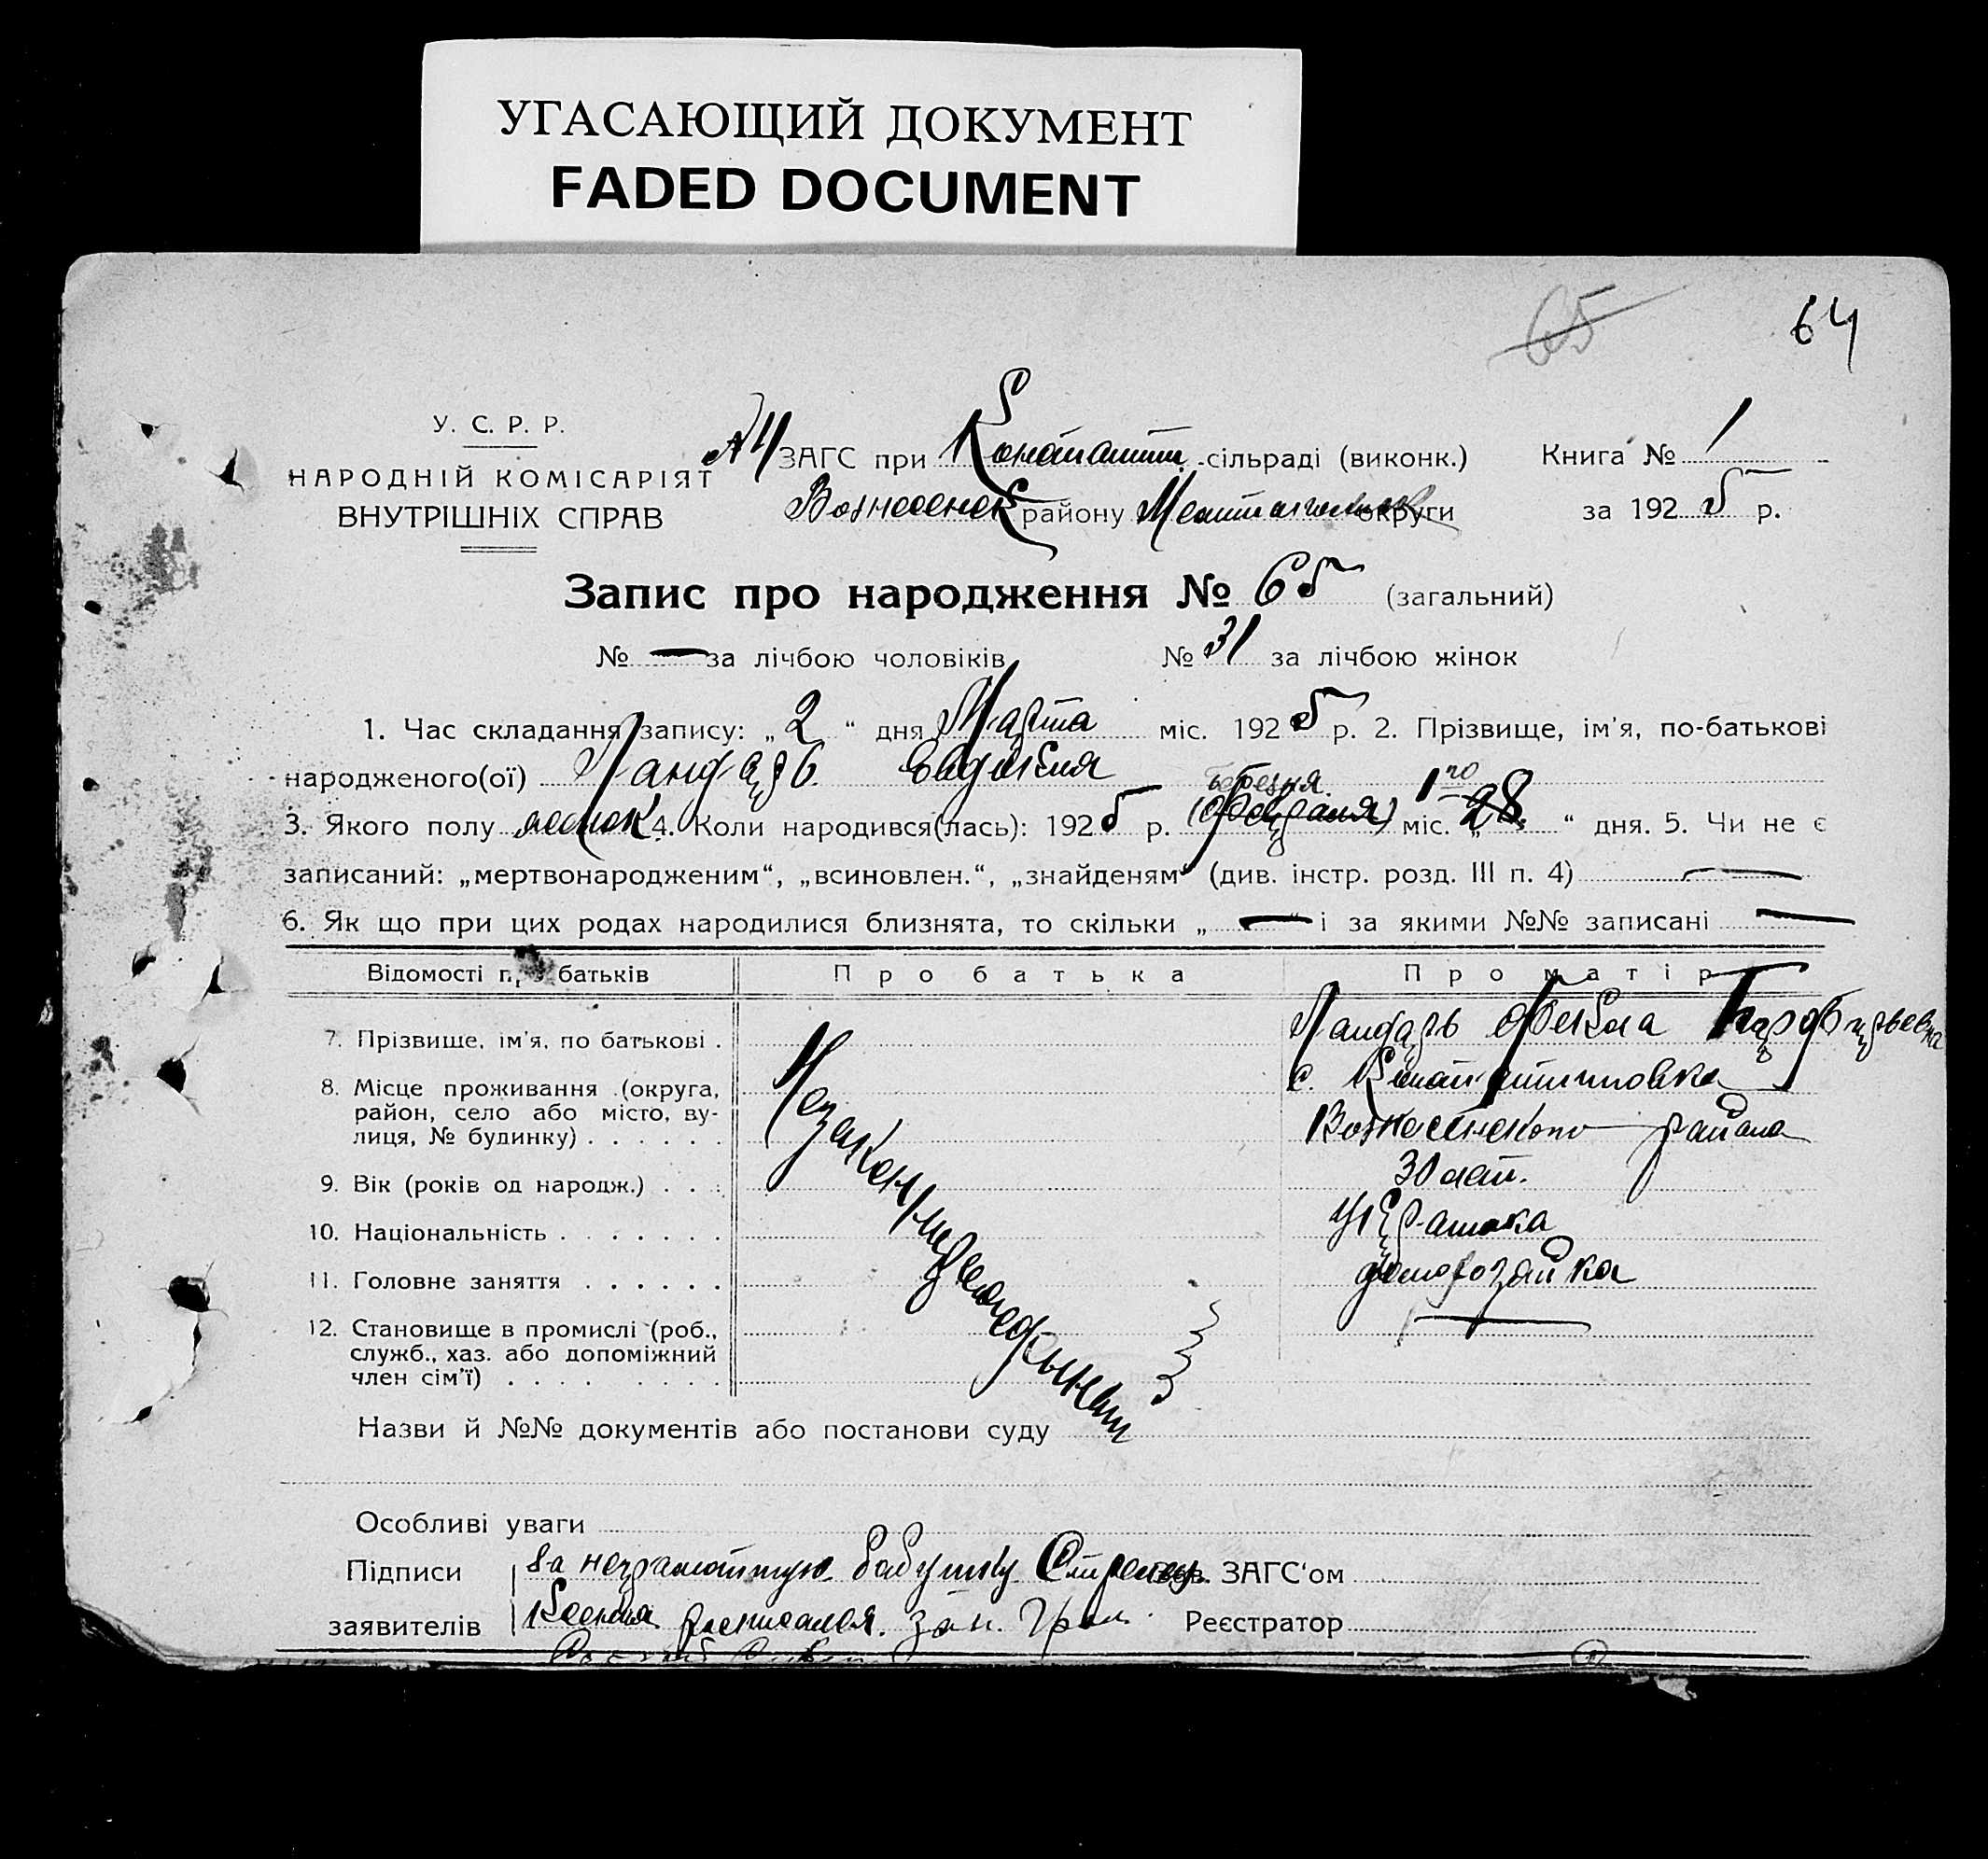 УГАСАЮЩИЙ ДОКУМЕНТ
FADED DOCUMENT
65
64
У. С. Р. Р.
НАРОДНІЙ КОМІСАРІЯТ
ВНУТРІШНІХ СПРАВ
ЗАГС при Константин. сільраді (виконк.)
Вознесенск району округи
Книга № 1
за 1925 р.
Запис про народження № 65 (загальний)
№ — за лічбою чоловіків № 31 за лічбою жінок
1. Час складання запису: „2“ дня Марта міс. 1925 р. 2. Прізвище, ім'я, по-батькові
народженого(ої) Евдокия
березня 1го
3. Якого полу женск 4. Коли народився(лась): 1925 р. (февраля) міс. „28“ дня. 5. Чи не є
записаний: „мертвонародженим“, „всиновлен.“, „знайденям“ (див. інстр. розд. III п. 4) —
6. Як що при цих родах народилися близнята, то скільки „—“ і за якими №№ записані —
Відомості про батьків Про батька Про матір
7. Прізвище, ім'я, по батькові . Фекла
8. Місце проживання (округа, с. Константиновка
район, село або місто, ву- Вознесенского района
лиця, № будинку) . . . . . .
9. Вік (років од народж.) . . . 30 лет.
10. Національність . . . . . . . Украинка
11. Головне заняття . . . . . . домохозяйка
12. Становище в промислі (роб., —
служб., хаз. або допоміжний
член сім'ї) . . . . . . . . .
Незаконнорожденный
Назви й №№ документів або постанови суду
Особливі уваги
Підписи За неграмотную бабушку Зав. ЗАГС'ом
заявителів Ксения расписался. Реєстратор